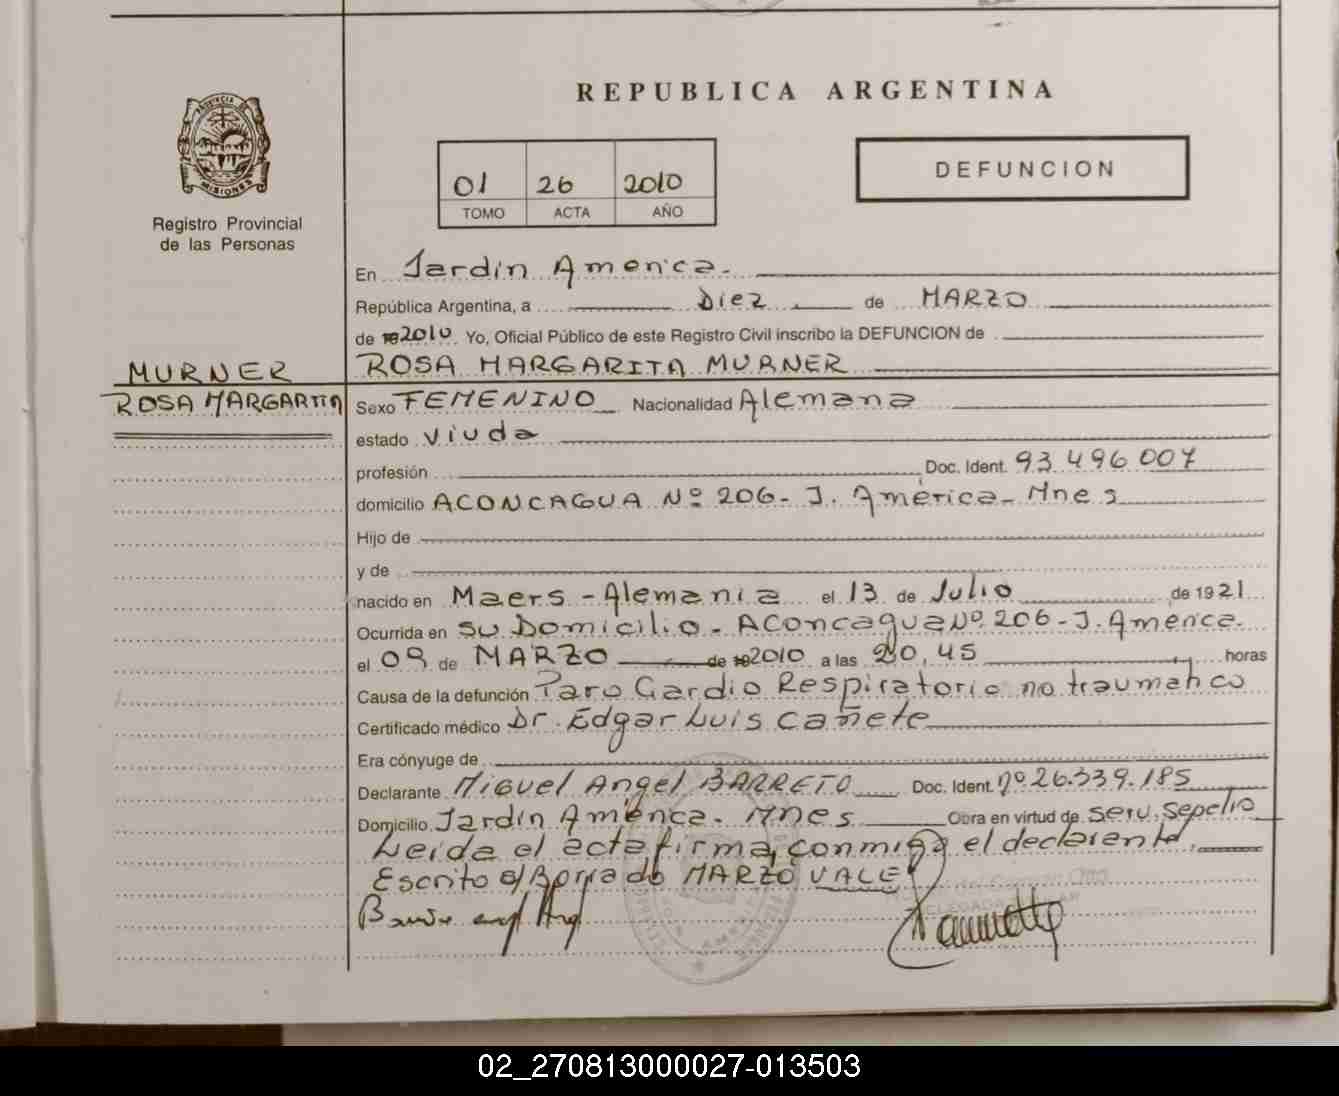 REPUBLICA ARGENTINA
PROVINCIA DE
MISIONES
Registro Provincial
de las Personas
01 26 2010
TOMO ACTA AÑO
DEFUNCION
En Jardin America.
República Argentina, a Diez de MARZO
de 2010 Yo, Oficial Público de este Registro Civil inscribo la DEFUNCION de
ROSA MARGARITA MURNER
MURNER
ROSA MARGARITA
Sexo FEMENINO Nacionalidad Alemana
estado viuda
profesión Doc. Ident. 93.496.007
domicilio ACONCAGUA Nº 206 - J. América - Mnes
Hijo de
y de
nacido en Maers - Alemania el 13 de Julio de 1921
Ocurrida en su Domicilio - Aconcagua Nº 206 - J. America.
el 09 de MARZO de 2010 a las 20,45 horas
Causa de la defunción Paro Cardio Respiratorio no traumatico
Certificado médico Dr. Edgar Luis Cañete
Era cónyuge de
Declarante Miguel Angel BARRETO Doc. Ident. nº 26.339.185
Domicilio Jardin America - Mnes Obra en virtud de serv. Sepelio
Leida el acta firma, conmigo el declarante,
Escrito s/ Borrado MARZO VALE
02_270813000027-013503